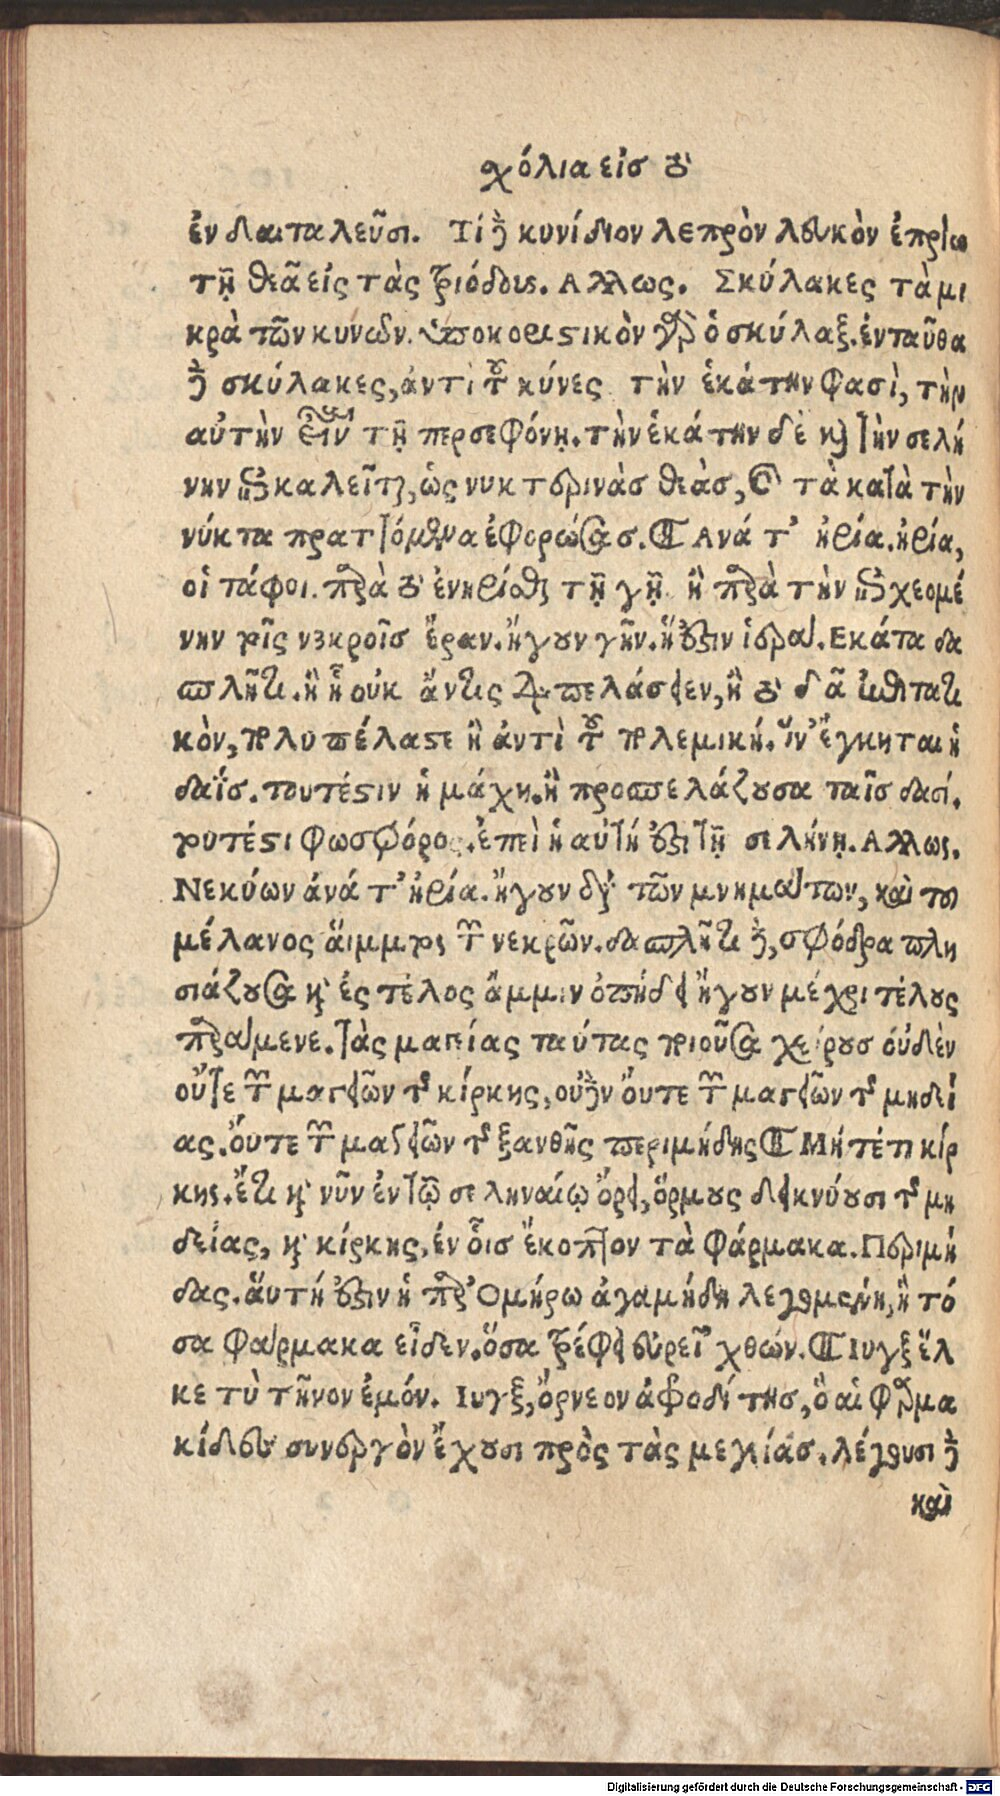 χόλια εἰσ τὸ
ἐν δαιταλεῦσι. Τί δὲ κυνίδιον λεπρὸν λευκὸν ἐπρίω
τῇ θεᾶ εἰς τὰς τριόδους. Αλλως. Σκύλακες τὰ μι
κρὰ τῶν κυνῶν. ὑποκοριστικὸν γὰρ ὁ σκύλαξ. ἐνταῦθα
δὲ σκύλακες, ἀντὶ τοῦ κύνες τὴν ἑκάτην φασὶ, τὴν
αὐτὴν εἶναι τῇ περσεφόνῃ. τὴν ἑκάτην δὲ καὶ τὴν σελή
νην καλεῖται, ὡς νυκτερινὰσ θεὰσ, καὶ τὰ κατὰ τὴν
νύκτα πραττόμενα ἐφορώσασ. Ανά τ' ἠρία. ἠρία,
οἱ τάφοι. παρὰ τὸ ἐν τῇ γῇ. ἢ παρὰ τὴν χεομέ
νην τοῖς νεκροῖσ ἔραν. ἤγουν γῆν. ἥ ἐστιν ἱερά. Εκάτα δα
σπλῆτι. ἢ ᾗ οὐκ ἄν τις πελάσειεν, ἢ τὸ δᾶ ἐπιτατι
κὸν, πολυπέλαστε ἢ ἀντὶ τοῦ πολεμική. ἵν' ἔγκηται ἡ
δαΐσ. τουτέστιν ἡ μάχη. ἢ προσπελάζουσα ταῖσ δασί.
τουτέστι φωσφόρος. ἐπεὶ ἡ αὐτή ἐστι τῇ σελήνῃ. Αλλως.
Νεκύων ἀνά τ' ἠρία. ἤγουν διὰ τῶν μνημάτων, καὶ του
μέλανος αἵμματος τῶν νεκρῶν. δασπλῆτι δὲ, σφόδρα πλη
σιάζουσα καὶ ἐς τέλος ἄμμιν ὀπήδει ἤγουν μέχρι τέλους
παράμενε. τὰς μαγίας ταύτας ποιοῦσα χείρουσ οὐδὲν
οὔτε τῶν μαγειῶν τῆς κίρκης, οὐδὲν οὔτε τῶν μαγειῶν τῆς μηδεί
ας. οὔτε τῶν μαγειῶν τῆς ξανθῆς περιμήδης Μήτέ τι κίρ
κης. ἔτι καὶ νῦν ἐν τῷ σεληναίῳ ὄρει, ὅρμους δεικνύουσι τῆς μη
δείας, καὶ κίρκης, ἐν οἷσ ἔκοπτον τὰ φάρμακα. Περιμή
δας. αὕτή ἐστιν ἡ παρ' Ομήρω ἀγαμήδη λεγομένη, ἣ τό
σα φάρμακα εἶδεν. ὅσα τρέφει εὐρεῖα χθών. Ιυγξ ἕλ
κε τὺ τῆνον ἐμόν. Ιυγξ, ὄρνεον ἀφροδίτησ, ὃ αἱ φαρμα
κίδες συνεργὸν ἔχουσι πρὸς τὰς μεγίασ. λέγουσι δὲ
καὶ
Digitalisierung gefördert durch die Deutsche Forschungsgemeinschaft - DFG